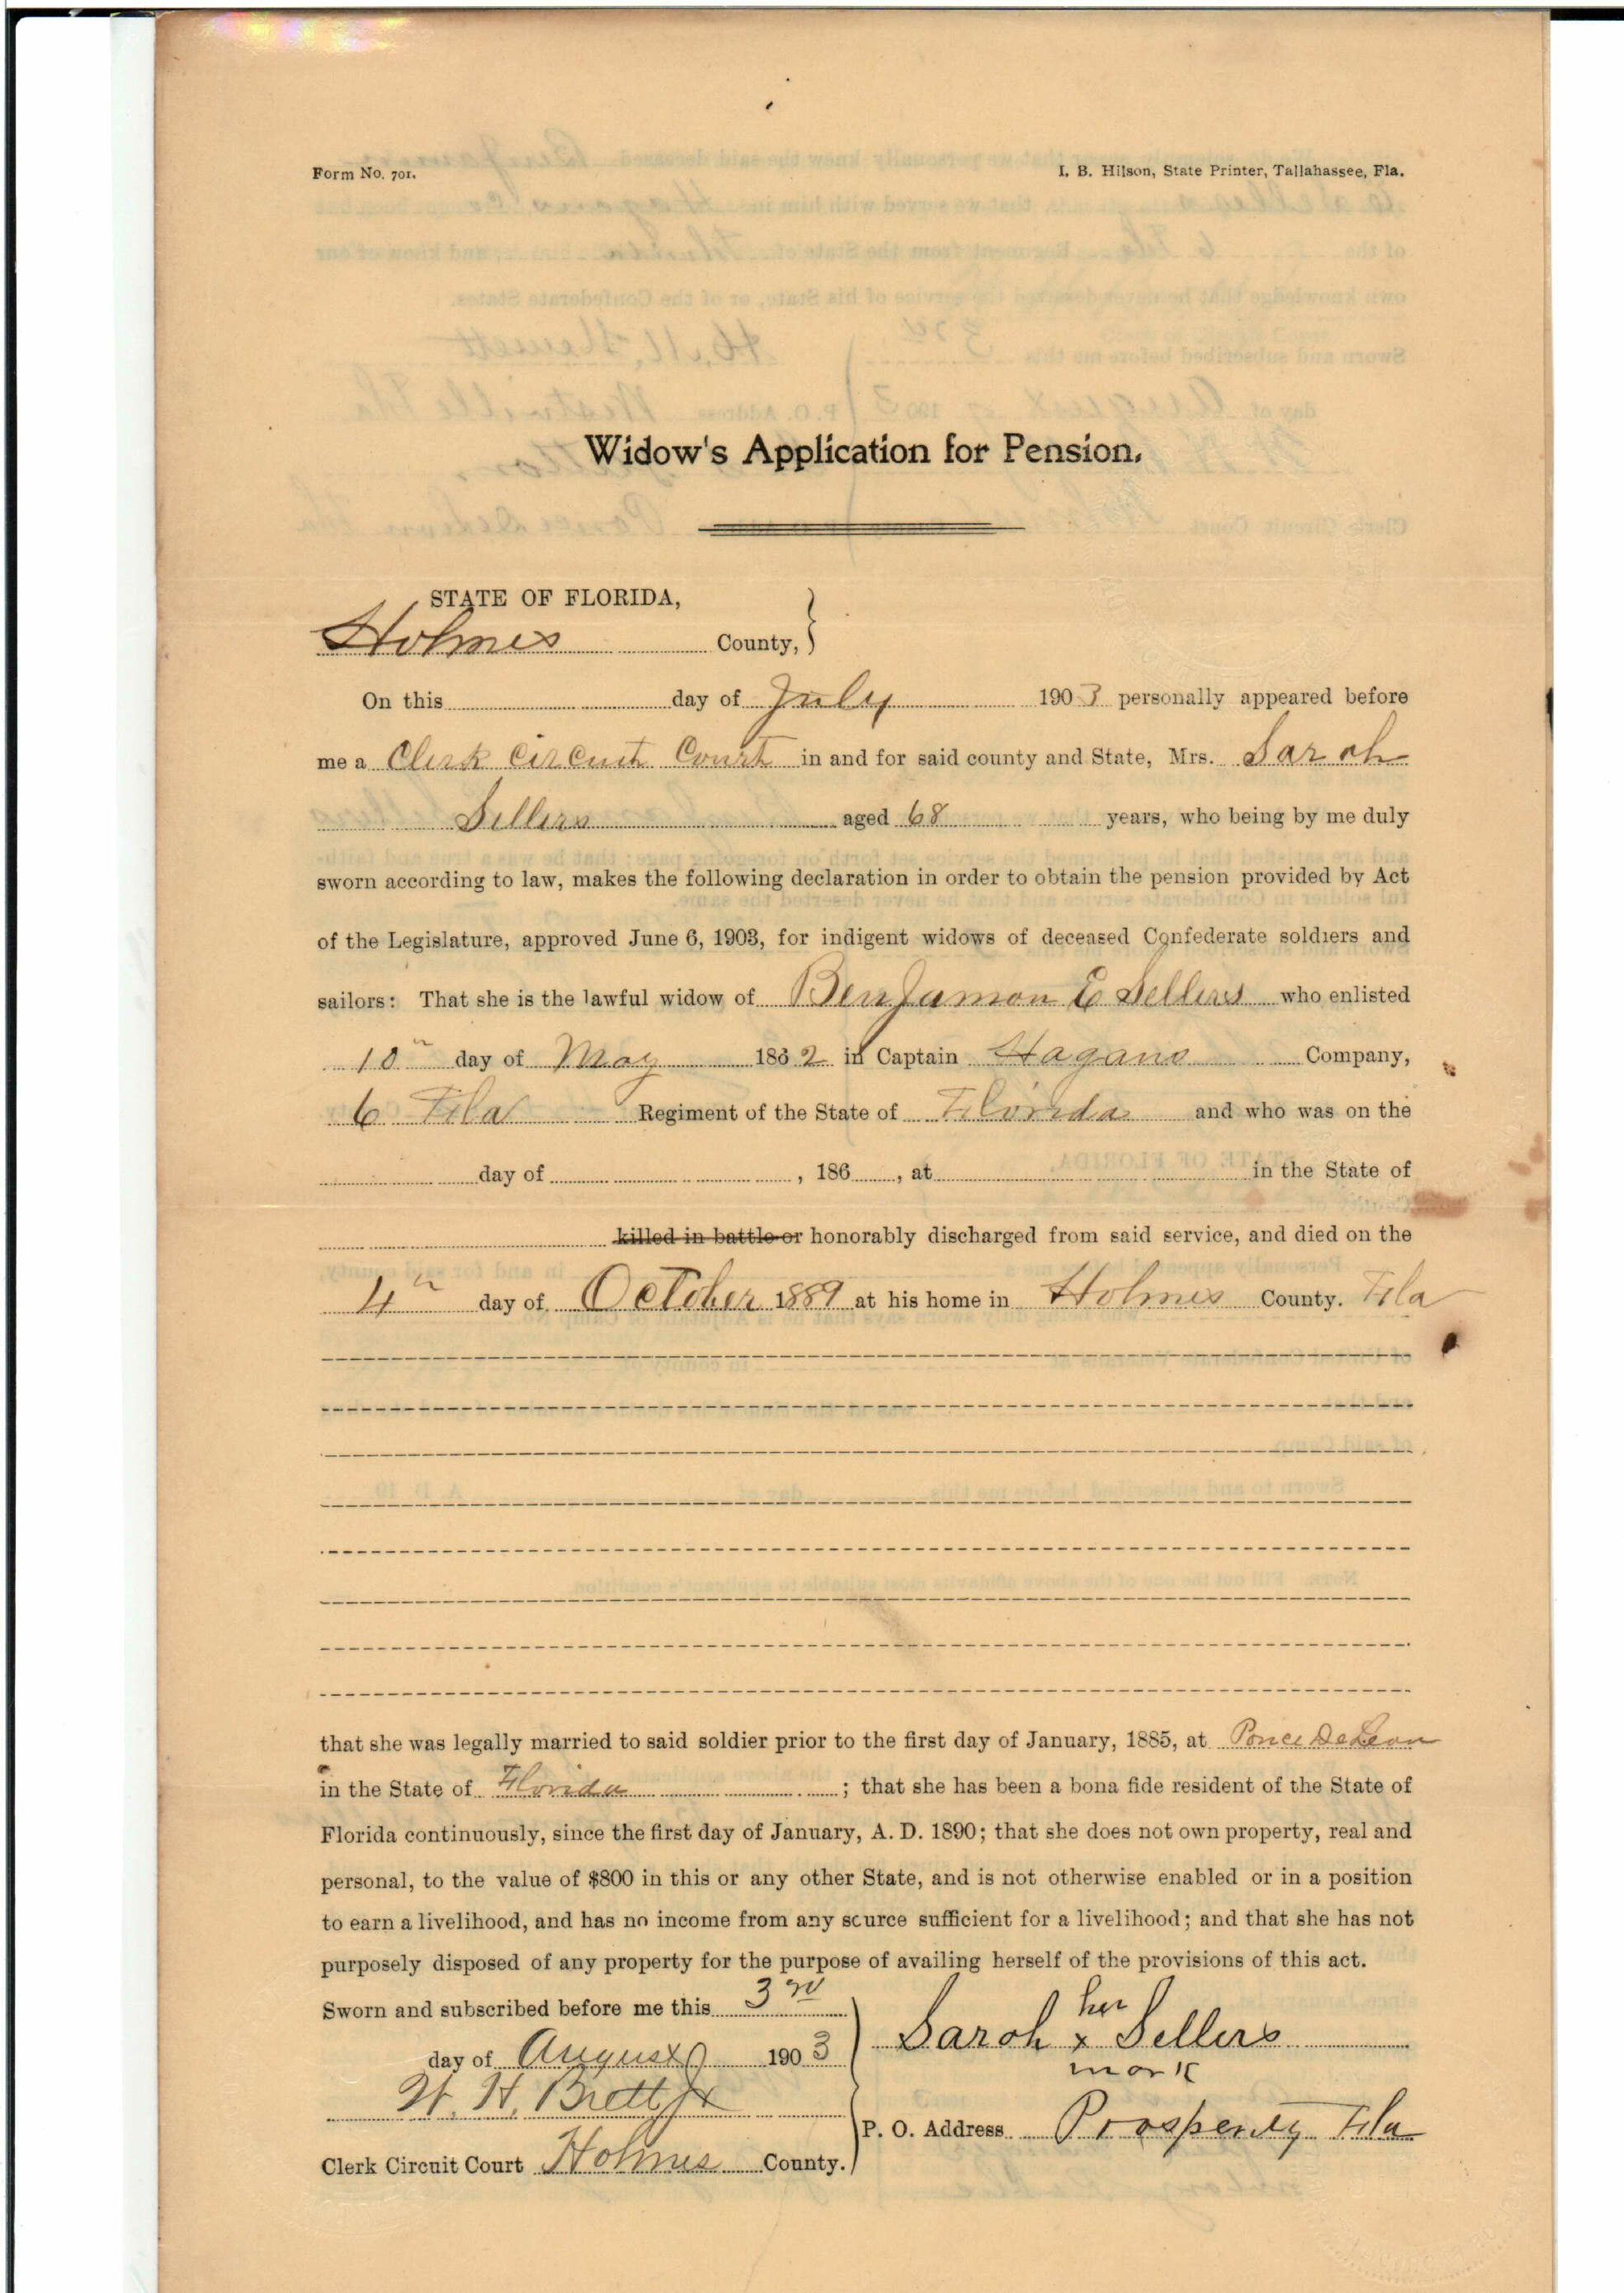 Form No. 701.
I. B. Hilson, State Printer, Tallahassee, Fla.
Widow's Application for Pension.
STATE OF FLORIDA,
Holmes County,
On this day of July 1903 personally appeared before
me a Clerk Circuit Court in and for said county and State, Mrs. Sarah
Sellers aged 68 years, who being by me duly
sworn according to law, makes the following declaration in order to obtain the pension provided by Act
of the Legislature, approved June 6, 1903, for indigent widows of deceased Confederate soldiers and
sailors: That she is the lawful widow of Benjamon E Sellers who enlisted
10th day of May 1862 in Captain Hagans Company,
6 Fla Regiment of the State of Florida and who was on the
day of , 186 , at in the State of
killed in battle or honorably discharged from said service, and died on the
4th day of October 1889 at his home in Holmes County. Fla
that she was legally married to said soldier prior to the first day of January, 1885, at Ponce DeLeon
in the State of Florida ; that she has been a bona fide resident of the State of
Florida continuously, since the first day of January, A. D. 1890; that she does not own property, real and
personal, to the value of $800 in this or any other State, and is not otherwise enabled or in a position
to earn a livelihood, and has no income from any source sufficient for a livelihood; and that she has not
purposely disposed of any property for the purpose of availing herself of the provisions of this act.
Sworn and subscribed before me this 3rd
day of August 1903
her
Sarah x Sellers
mark
W. H. Brett Jr
P. O. Address Prosperity Fla
Clerk Circuit Court Holmes County.